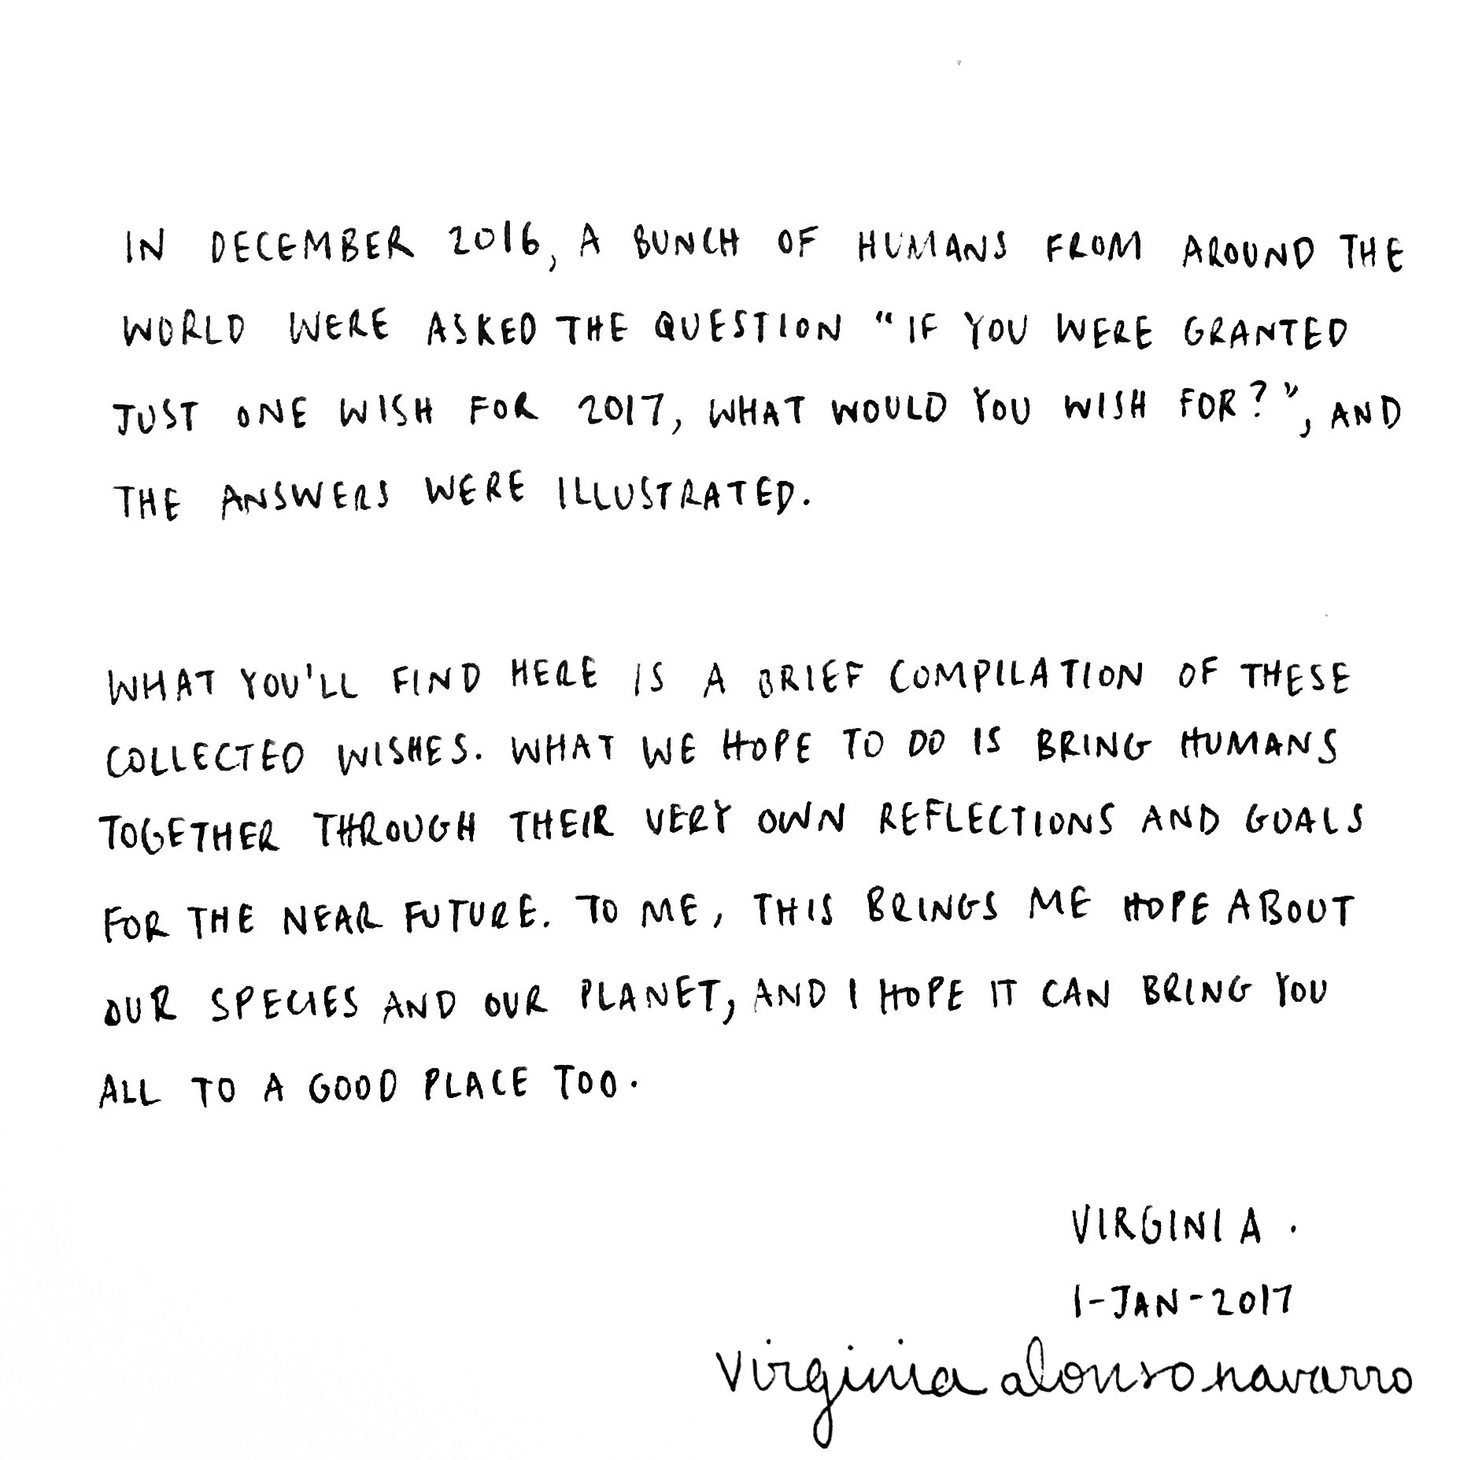 IN DECEMBER 2016, A BUNCH OF HUMANS FROM AROUND THE
WORLD WERE ASKED THE QUESTION "IF YOU WERE GRANTED
JUST ONE WISH FOR 2017, WHAT WOULD YOU WISH FOR?", AND
THE ANSWERS WERE ILLUSTRATED.
WHAT YOU'LL FIND HERE IS A BRIEF COMPILATION OF THESE
COLLECTED WISHES. WHAT WE HOPE TO DO IS BRING HUMANS
TOGETHER THROUGH THEIR VERY OWN REFLECTIONS AND GOALS
FOR THE NEAR FUTURE. TO ME, THIS BRINGS ME HOPE ABOUT
OUR SPECIES AND OUR PLANET, AND I HOPE IT CAN BRING YOU
ALL TO A GOOD PLACE TOO.
VIRGINIA.
1-JAN-2017
virginia alonso navarro